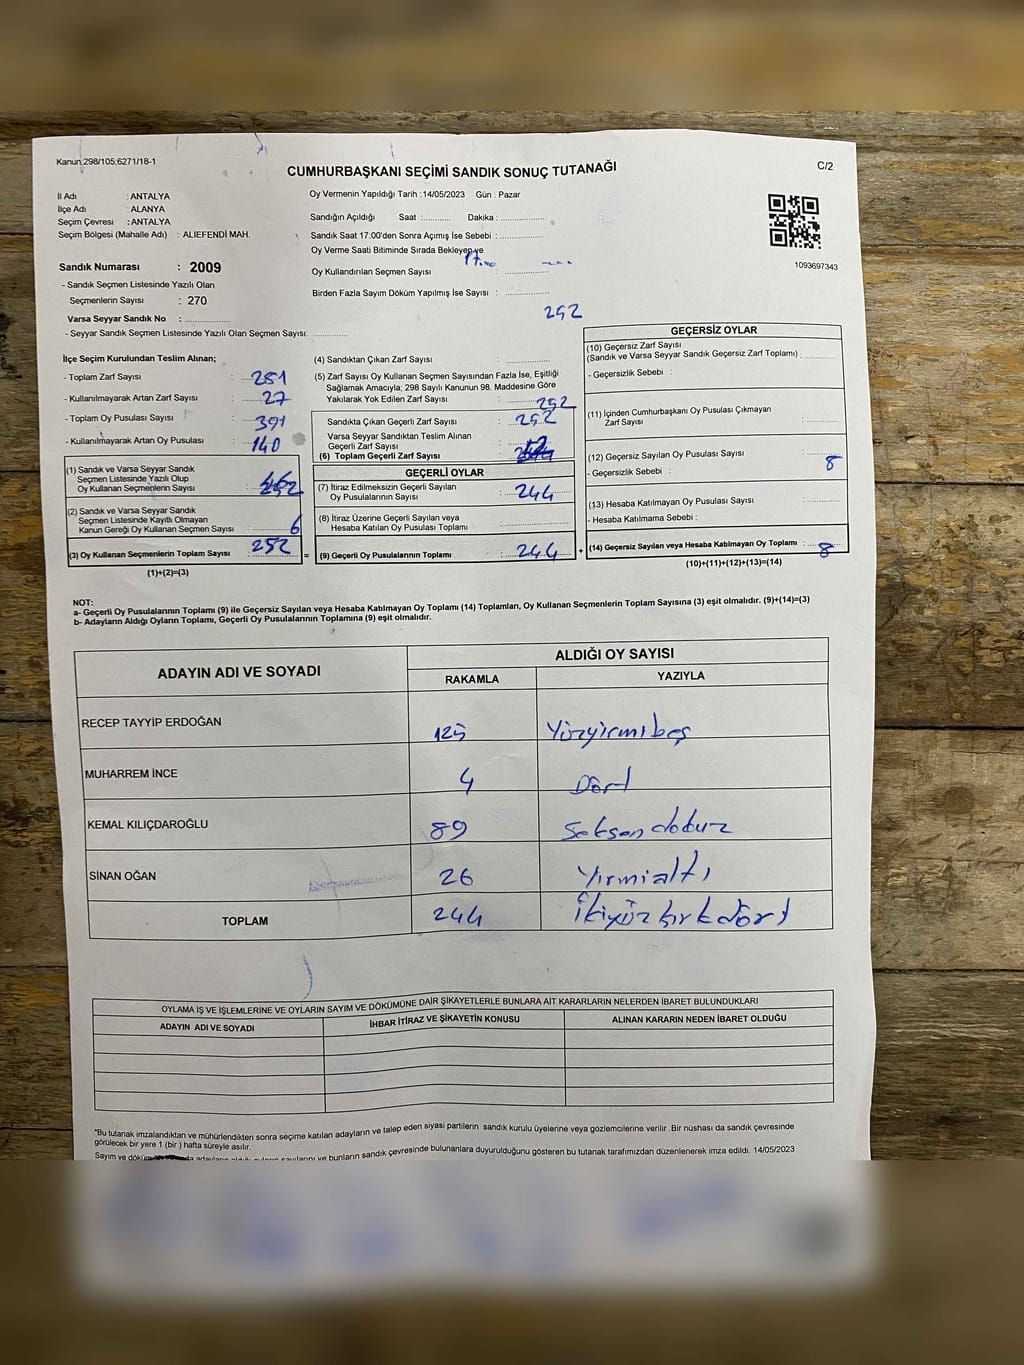 Kanun,298/105,6271/18-1
CUMHURBAŞKANI SEÇİMİ SANDIK SONUÇ TUTANAĞI
C/2
İl Adı : ANTALYA
İlçe Adı : ALANYA
Seçim Çevresi : ANTALYA
Seçim Bölgesi (Mahalle Adı) : ALIEFENDİ MAH.
Oy Vermenin Yapıldığı Tarih :14/05/2023 Gün : Pazar
Sandığın Açıldığı Saat :.......... Dakika :................
Sandık Saat 17:00'den Sonra Açımış İse Sebebi :................
Oy Verme Saati Bitiminde Sırada Bekleyen ve
17.00
Oy Kullandırılan Seçmen Sayısı :................
Birden Fazla Sayım Döküm Yapılmış İse Sayısı :................
1093697343
Sandık Numarası : 2009
- Sandık Seçmen Listesinde Yazılı Olan
Seçmenlerin Sayısı : 270
Varsa Seyyar Sandık No :................
- Seyyar Sandık Seçmen Listesinde Yazılı Olan Seçmen Sayısı:............
İlçe Seçim Kurulundan Teslim Alınan;
- Toplam Zarf Sayısı : 281
- Kullanılmayarak Artan Zarf Sayısı : 27
- Toplam Oy Pusulası Sayısı : 391
- Kullanılmayarak Artan Oy Pusulası : 140
(1) Sandık ve Varsa Seyyar Sandık
Seçmen Listesinde Yazılı Olup
Oy Kullanan Seçmenlerin Sayısı
(2) Sandık ve Varsa Seyyar Sandık
Seçmen Listesinde Kayıtlı Olmayan
Kanun Gereği Oy Kullanan Seçmen Sayısı 6
(3) Oy Kullanan Seçmenlerin Toplam Sayısı : 252
(1)+(2)=(3)
252
(4) Sandıktan Çıkan Zarf Sayısı :............
(5) Zarf Sayısı Oy Kullanan Seçmen Sayısından Fazla İse, Eşitliği
Sağlamak Amacıyla; 298 Sayılı Kanunun 98. Maddesine Göre
Yakılarak Yok Edilen Zarf Sayısı : 252
Sandıkta Çıkan Geçerli Zarf Sayısı : 252
Varsa Seyyar Sandıktan Teslim Alınan
Geçerli Zarf Sayısı
(6) Toplam Geçerli Zarf Sayısı
GEÇERLİ OYLAR
(7) İtiraz Edilmeksizin Geçerli Sayılan
Oy Pusulalarının Sayısı : 244
(8) İtiraz Üzerine Geçerli Sayılan veya
Hesaba Katılan Oy Pusulası Toplamı :............
= (9) Geçerli Oy Pusulalarının Toplamı : 244
GEÇERSİZ OYLAR
(10) Geçersiz Zarf Sayısı
(Sandık ve Varsa Seyyar Sandık Geçersiz Zarf Toplamı) :............
- Geçersizlik Sebebi :
(11) İçinden Cumhurbaşkanı Oy Pusulası Çıkmayan
Zarf Sayısı :............
(12) Geçersiz Sayılan Oy Pusulası Sayısı : 8
- Geçersizlik Sebebi :
(13) Hesaba Katılmayan Oy Pusulası Sayısı :............
- Hesaba Katılmama Sebebi :
+ (14) Geçersiz Sayılan veya Hesaba Katılmayan Oy Toplamı : 8
(10)+(11)+(12)+(13)=(14)
NOT:
a- Geçerli Oy Pusulalarının Toplamı (9) ile Geçersiz Sayılan veya Hesaba Katılmayan Oy Toplamı (14) Toplamları, Oy Kullanan Seçmenlerin Toplam Sayısına (3) eşit olmalıdır. (9)+(14)=(3)
b- Adayların Aldığı Oyların Toplamı, Geçerli Oy Pusulalarının Toplamına (9) eşit olmalıdır.
ADAYIN ADI VE SOYADI
ALDIĞI OY SAYISI
RAKAMLA YAZIYLA
RECEP TAYYİP ERDOĞAN 125 Yüzyirmibeş
MUHARREM İNCE 4 Dört
KEMAL KILIÇDAROĞLU 89 Seksendokuz
SİNAN OĞAN 26 Yirmialtı
TOPLAM 244 İkiyüzkırkdört
OYLAMA İŞ VE İŞLEMLERİNE VE OYLARIN SAYIM VE DÖKÜMÜNE DAİR ŞİKAYETLERLE BUNLARA AİT KARARLARIN NELERDEN İBARET BULUNDUKLARI
ADAYIN ADI VE SOYADI İHBAR İTİRAZ VE ŞİKAYETİN KONUSU ALINAN KARARIN NEDEN İBARET OLDUĞU
*Bu tutanak imzalandıktan ve mühürlendikten sonra seçime katılan adayların ve talep eden siyasi partilerin sandık kurulu üyelerine veya gözlemcilerine verilir .Bir nüshası da sandık çevresinde
görülecek bir yere 1 (bir ) hafta süreyle asılır.
Sayım ve döküm oyların sayılarını ve bunların sandık çevresinde bulunanlara duyurulduğunu gösteren bu tutanak tarafımızdan düzenlenerek imza edildi. 14/05/2023